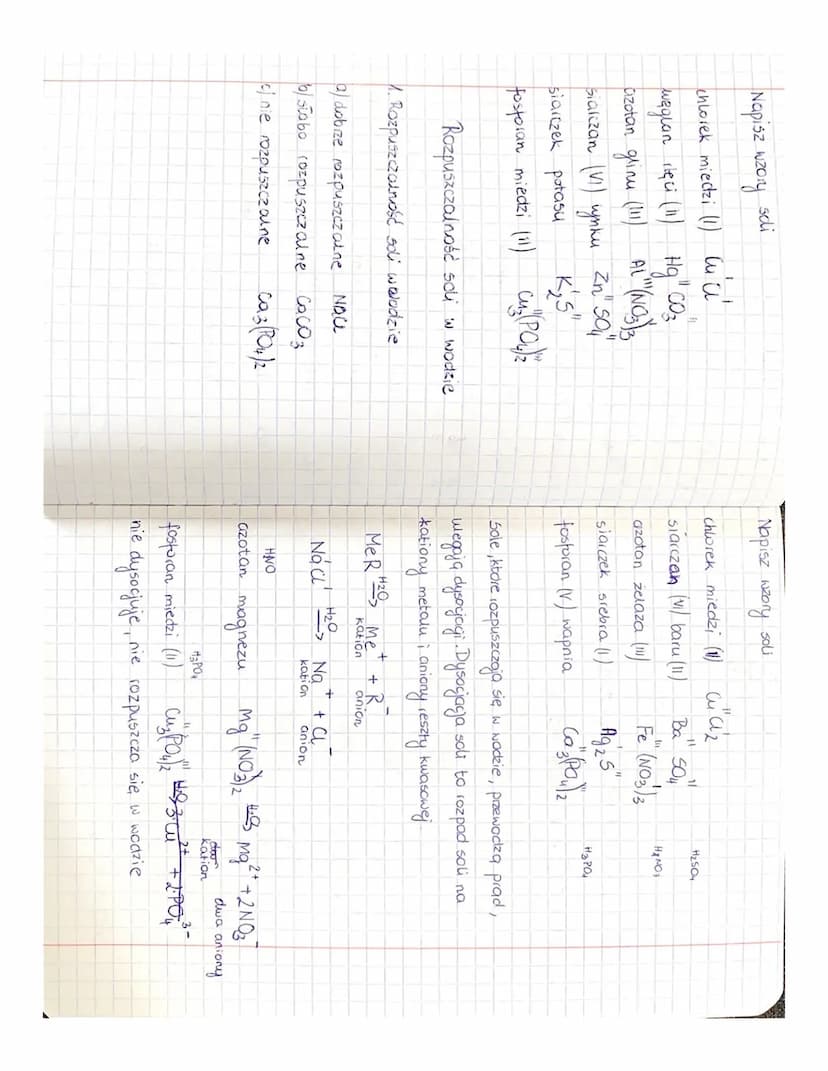 Napisz wzory soli
chlorek miedzi (I) CuᴵClᴵ
węglan rtęci (II) HgᴵᴵCO₃ᴵᴵ
azotan glinu (III) Alᴵᴵᴵ(NO₃)ᴵ₃
siarczan (VI) cynku ZnᴵᴵSO₄ᴵᴵ
siarczek potasu K₂ᴵSᴵᴵ
fosforan miedzi (II) Cu₃ᴵᴵ(PO₄)ᴵᴵᴵ₂
Rozpuszczalność soli w wodzie
1. Rozpuszczalność soli w wodzie
a) dobrze rozpuszczalne NaCl
b) słabo rozpuszczalne CaCO₃
c) nie rozpuszczalne Ca₃(PO₄)₂
Napisz wzory soli
chlorek miedzi (II) CuᴵᴵClᴵ₂
siarczan (VI) baru (II) BaᴵᴵSO₄ᴵᴵ H₂SO₄
azotan żelaza (III) Feᴵᴵᴵ(NO₃)ᴵ₃
siarczek srebra (I) Ag₂ᴵSᴵᴵ
fosforan (V) wapnia Ca₃ᴵᴵ(PO₄)ᴵᴵᴵ₂ H₃PO₄
Sole, które rozpuszczają się w wodzie, przewodzą prąd,
ulegają dysocjacji. Dysocjacja soli to rozpad soli na
kationy metalu i aniony reszty kwasowej
MeR H₂O→ Me⁺ + R⁻
kation anion
NaᴵClᴵ H₂O→ Na⁺ + Cl⁻
kation anion
HNO
azotan magnezu Mgᴵᴵ(NO₃)ᴵ₂ H₂O→ Mg²⁺ + 2NO₃⁻
kation dwa aniony
H₃PO₄
fosforan miedzi (II) Cu₃ᴵᴵ(PO₄)ᴵᴵᴵ₂ H₂O→ 3Cu²⁺ + 2PO₄³⁻
nie dysocjuje, nie rozpuszcza się w wodzie